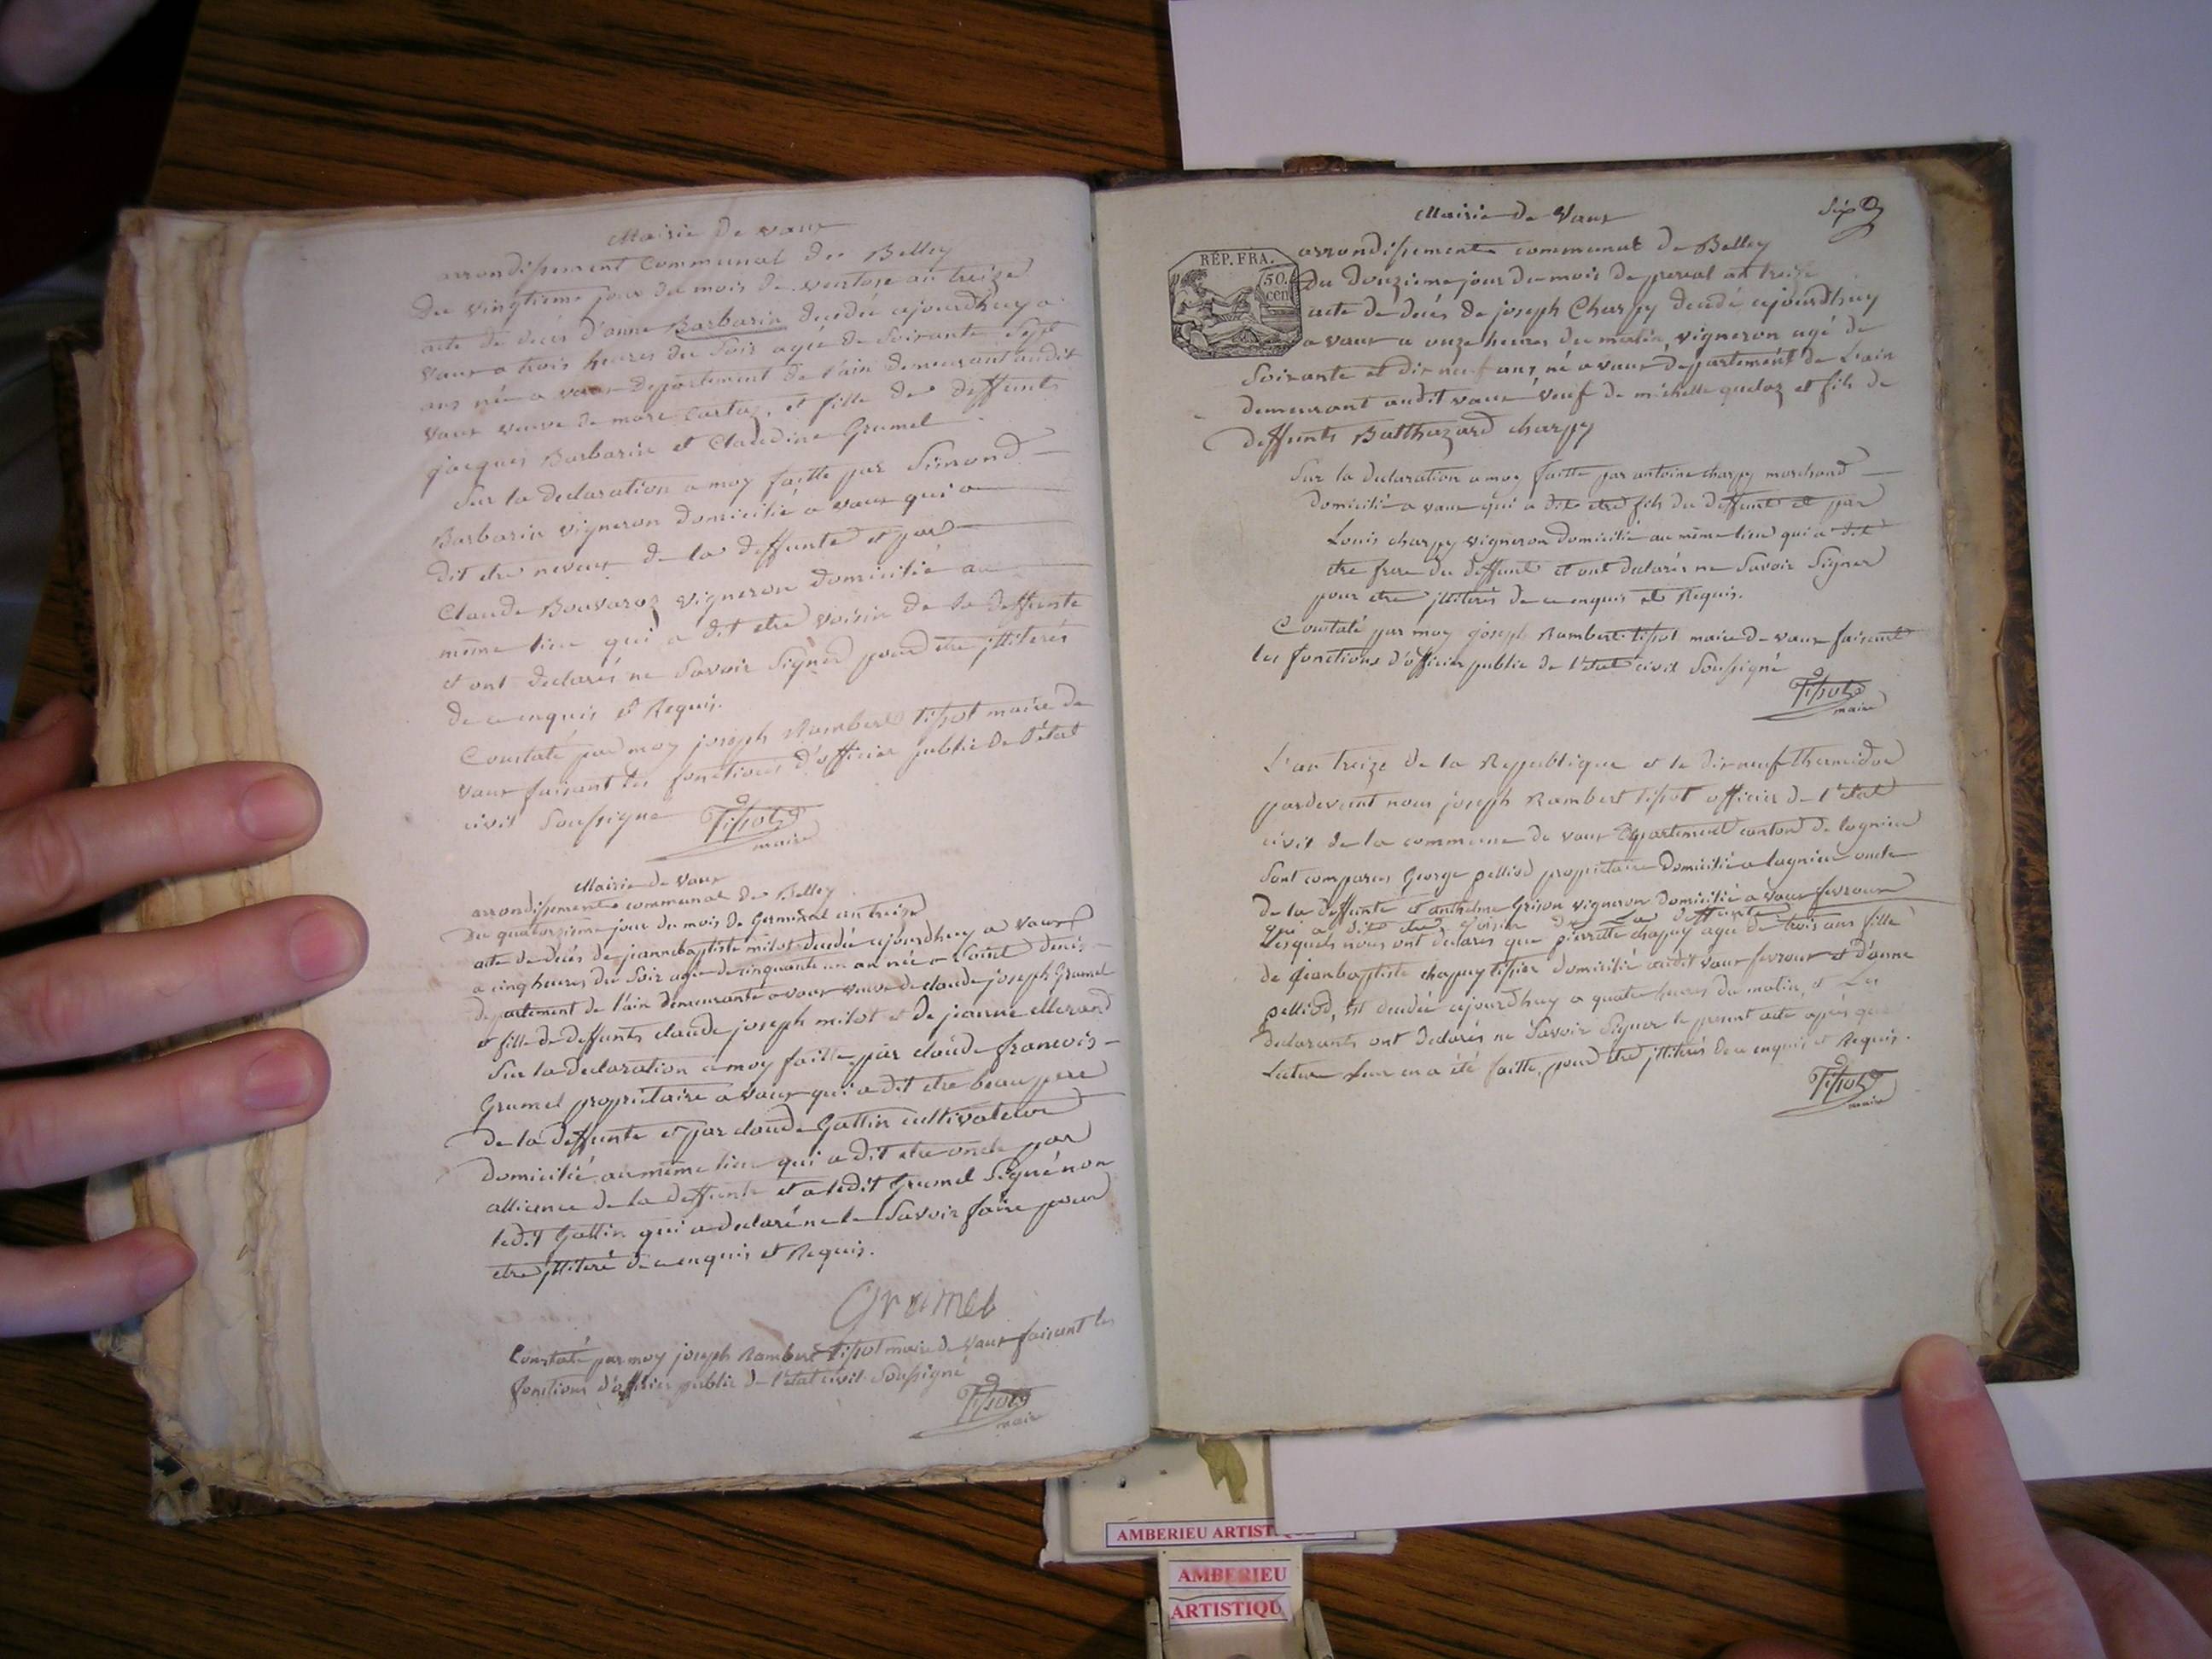 Mairie de vaux
arrondissement Communal de Belley
Du vingtieme jour du mois de ventose an treize
acte de décès d'anne Barbarin decedée ajourdhuy a
vaux a trois heures du Soir agée de Soixante Sept
ans née a vaux departement de l'ain demeurant audit
vaux veuve de marc Cartaz, et fille de deffunts
jacques Barbarin et Claudine Grumel
Sur la declaration a moy faitte par Simond
Barbarin vigneron domicilié a vaux qui a
dit etre neveux de la deffunte et par
Claude Bouvaroz vigneron domicilié au
même lieu qui a dit etre voisin de la deffunte
et ont declarés ne Savoir Signer pour etre jlliterés
de ce enquis et Requis.
Constaté par moy joseph Rambert tissot maire de
vaux faisant les fonctions d'officier public de l'état
civil Soussigné
Tissot
maire
Mairie de Vaux
arrondissement communal de Belley
Du quatorzieme jour du mois de Germinal an treize
acte de décés de jeannebaptiste milot decedée ajourdhuy a vaux
a cinq heures du Soir agée de cinquante un an née a Saint denis
departement de l'ain demeurante a vaux veuve de claude joseph Grumel
et fille de deffunts claude joseph milot et de jeanne Morand
Sur la declaration a moy faitte par claude francois
Grumel proprietaire a vaux qui a dit etre beau pere
de la deffunte et par claude Gattin cultivateur
domicilié au même lieu qui a dit etre oncle par
alliance de la deffunte et a ledit Grumel Signé non
ledit Gattin qui a declaré ne le Savoir faire pour
etre jlliteré de ce enquis et Requis.
Grumel
Constaté par moy joseph Rambert tissot maire de vaux faisant les
fonctions d'officier public de l'état civil Soussigné
Tissot
maire
Mairie de Vaux
Six
RÉP. FRA.
50.
cen
arrondissement communal de Belley
Du Douzieme jour du mois de prereal an treize
acte de décés de joseph Charpy decedé ajourdhuy
a vaux a onze heures du matin, vigneron agé de
Soixante et dix neuf ans né a vaux departement de L'ain
demeurant audit vaux veuf de michelle quelaz et fils de
deffunts Balthazard charpy
Sur la declaration a moy faitte par antoine charpy marchand
domicilié a vaux qui a dit etre fils du deffunt et par
Louis charpy vigneron domicilié au même lieu qui a dit
etre frere du deffunt et ont declarés ne Savoir Signer
pour etre jlliterés de ce enquis et Requis.
Constaté par moy joseph Rambert tissot maire de vaux faisant
les fonctions d'officier public de l'état civil Soussigné
Tissot
maire
L'an treize de la Republique et le dix neuf thermidor
pardevant nous joseph Rambert tissot officier de l'etat
civil de la commune de vaux Departement canton de lagnieu
Sont comparus George pelliod proprietaire domicilié a lagnieu oncle
de la deffunte et anthelme Grison vigneron domicilié a vaux fevroux
qui a dit etre voisin de La deffunte
Lesquels nous ont declarés que pierrette chapuy agée de trois ans fille
de jeanbaptiste chapuy tissier domicilié audit vaux fevroux et d'anne
pelliod, est decedée ajourdhuy a quatre heures du matin, et Les
declarants ont declarés ne Savoir Signer le present acte après que
Lecture Leur en a été faitte, pour etre jlliterés de ce enquis et Requis.
Tissot
maire
AMBERIEU ARTIST
AMBERIEU
ARTISTIQU